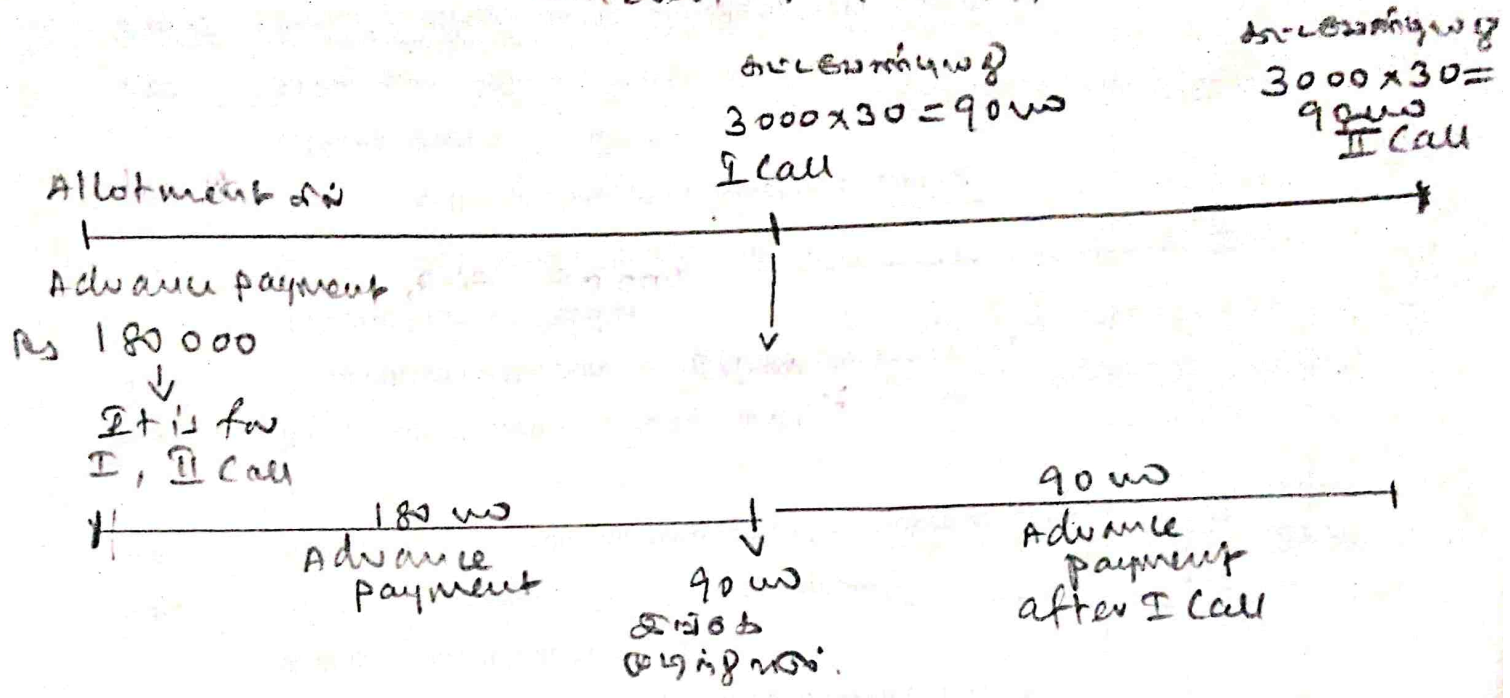 கட்டவேண்டியது
3000 x 30 =
90000
II Call
கட்டவேண்டியது
3000 x 30 = 90000
I Call
Allotment ல்
Advance payment
Rs 180 000
↓
It is for
I, II Call
180 000
Advance
payment
90 000
இங்கே
முடிந்துவிடும்.
90 000
Advance
payment
after I Call